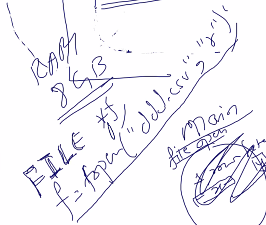 RAM
8 GB
FILE *f;
f = fopen("ddd.csv", "r");
Main
file open